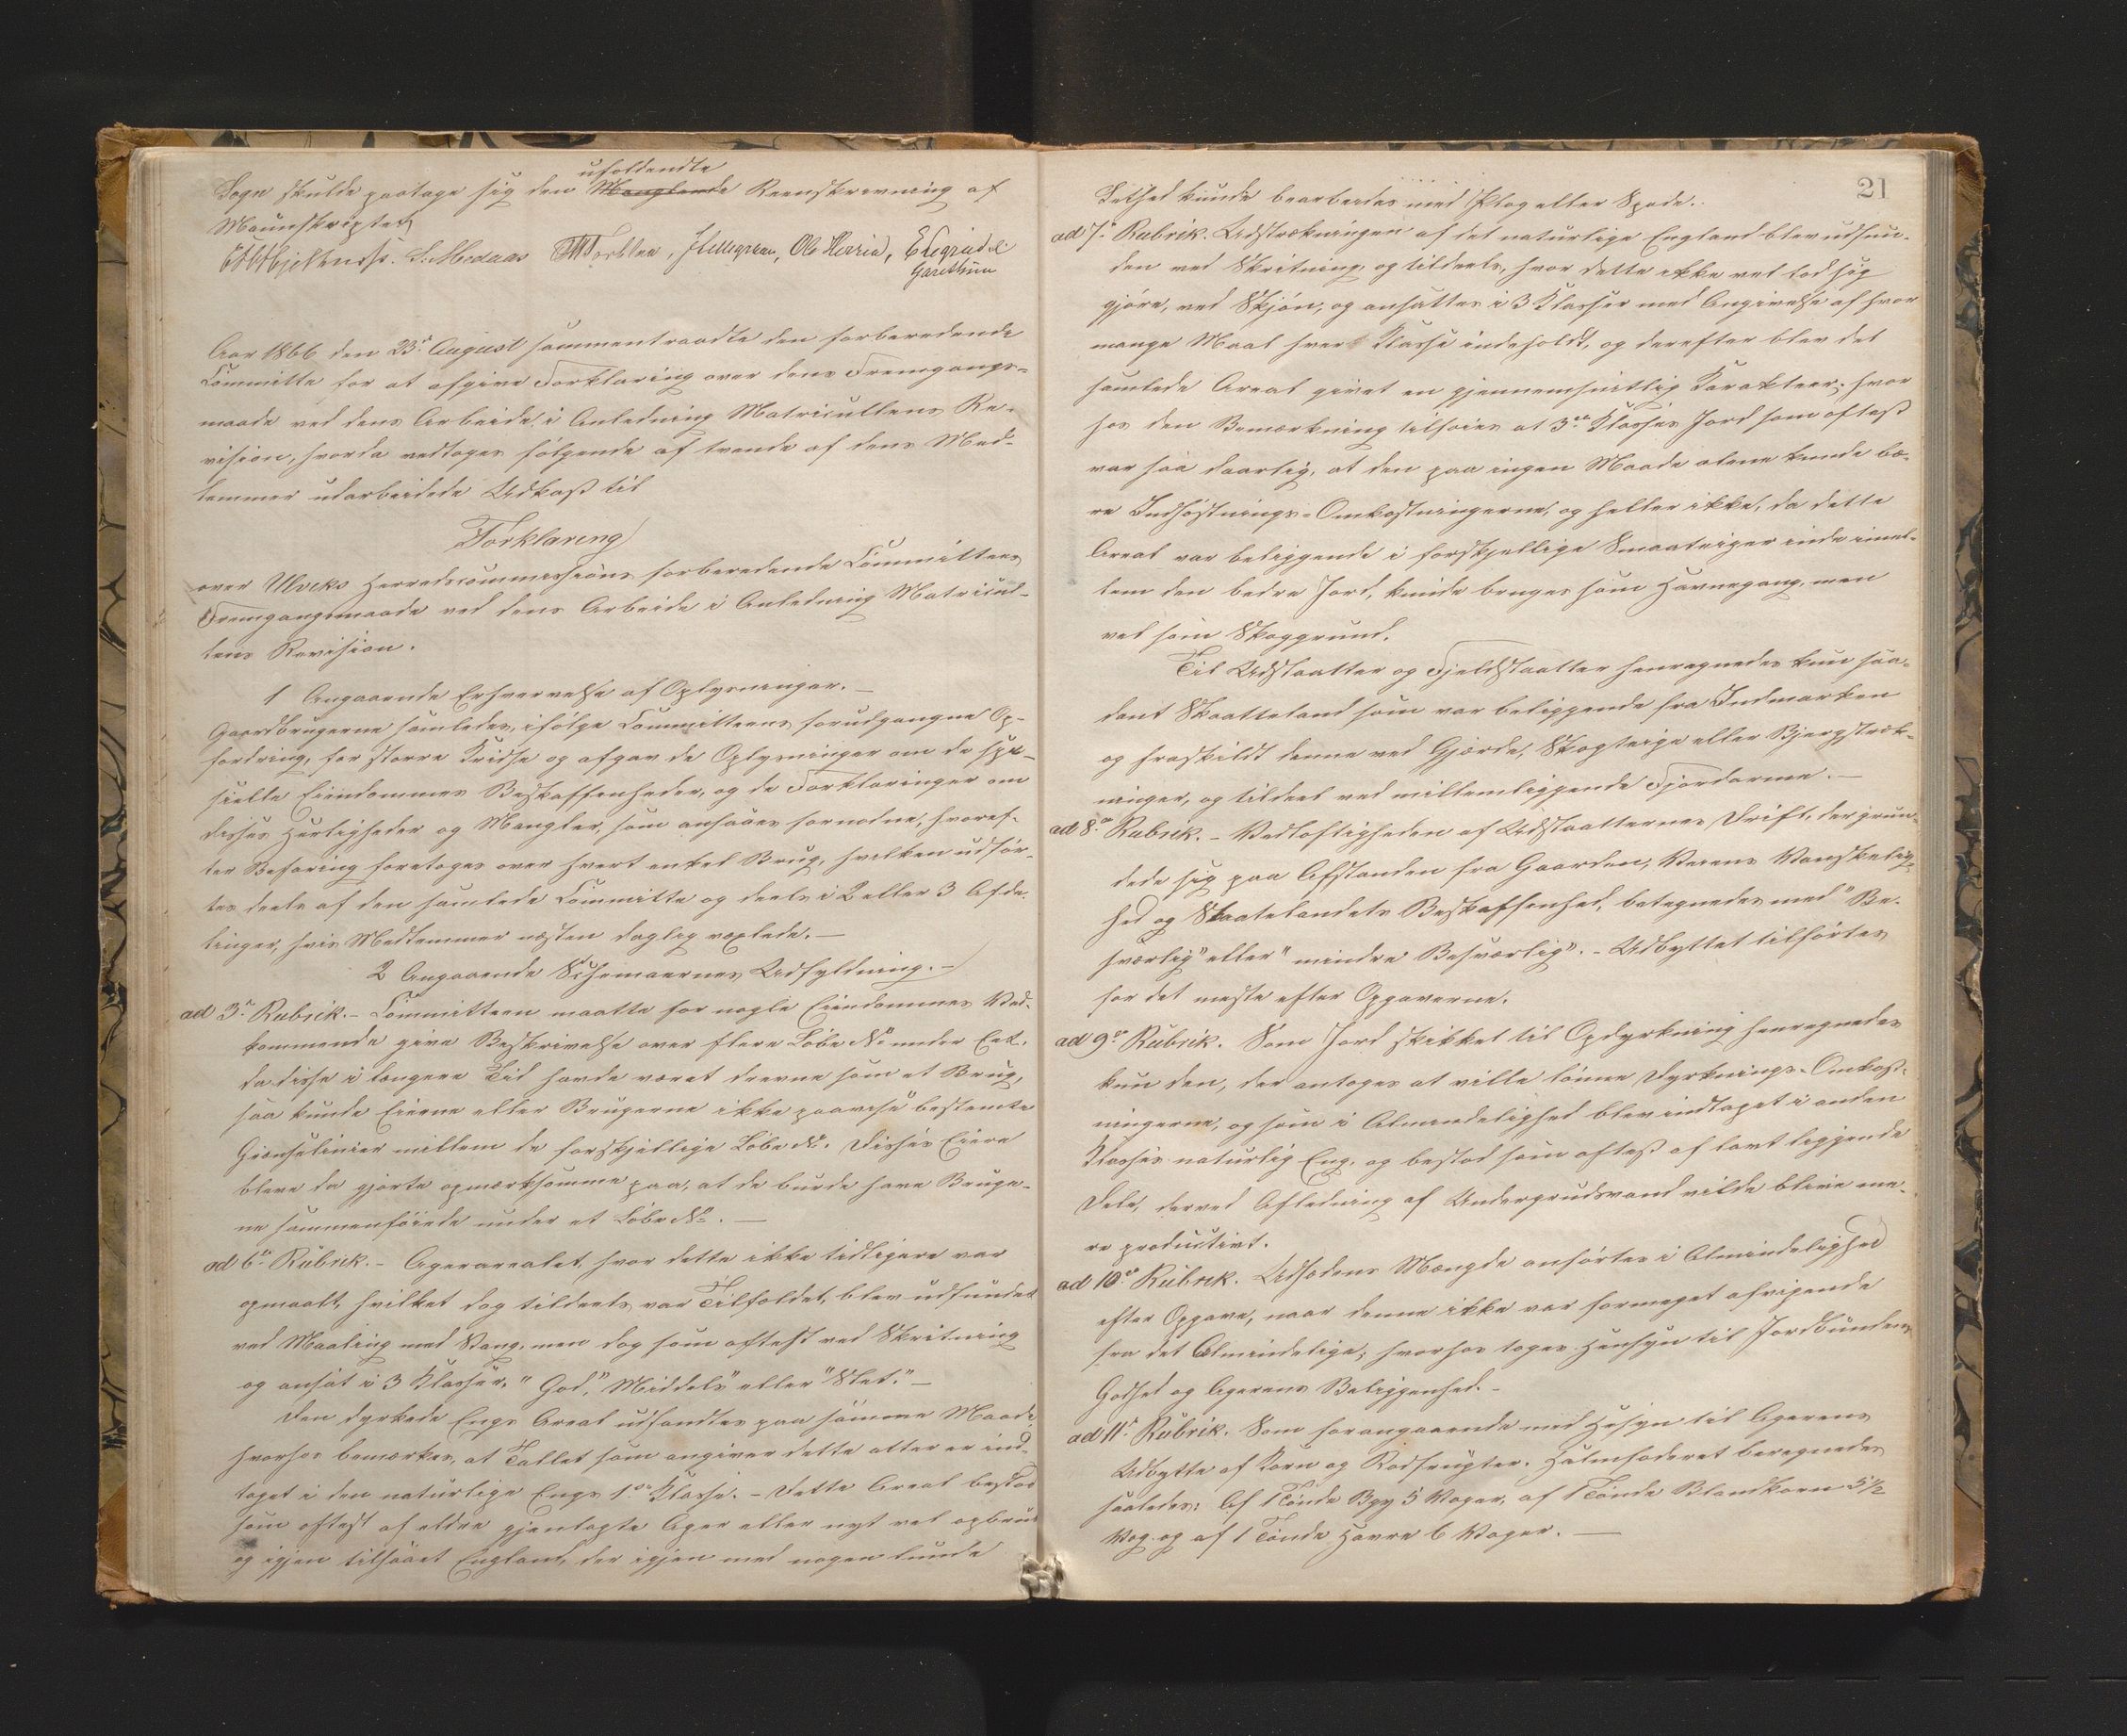 ufoldendte
Sogn skulde paatage sig den Manglende Reenskrivning af
Manuskriptet
S. Medaas Torblaa, J Lillegraven, Ole Herreid, E Legreid
Garethun
Aar 1866 den 23de August sammentraadte den forberedende
Committe for at afgive Forklaring over dens Fremgangs-
maade ved dens Arbeide, i Anledning Matricullens Re-
vision, hvorda vedtoges følgende af tvende af dens Med-
lemmer udarbeidede Udkast til
Forklaring
over Ulviks Herredscommissions forberedende Committees
Fremgangsmaade ved dens Arbeide i Anledning Matricul-
lens Revision.
1 Angaaende Erhvervelse af Oplysninger. –
Gaardbrugerne samledes, ifølge Committeens forudgangne Op-
fordring, for større Kridse og afgav de Oplysninger om de spe-
sielle Eiendommes Beskaffenheder, og de Forklaringer om
disses Herligheder og Mangler, som ansaaes fornødne, hvoref-
ter Befaring foretoges over hvert enkel Brug, hvilken udfør-
tes deels af den samlede Committe og deels i 2 eller 3 Afde-
linger, hvis Medlemmer næsten daglig vexlede. –
2 Angaaende Schemaernes Udfyldning. –
ad 3die Rubrik. – Committeen maatte for nogle Eiendommes Ved-
kommende give Beskrivelse over flere Løbe No under Eet.
da disse i længere Tid havde været drevne som et Brug,
saa kunde Eierne eller Brugerne ikke paavise bestemte
Grænselinier mellem de forskjellige Løbe No. Disses Eiere
bleve da gjorte opmærksomme paa, at de burde have Bruge-
ne sammenføiede under et Løbe No. –
ad 6te Rubrik. – Agerarealet, hvor dette ikke tidligere var
opmaalt, hvilket dog tildeels var Tilfældet, blev udfundet
ved Maaling med Stang, men dog som oftest ved Skritning
og ansat i 3 Klasser, "God," "Middels" eller "Slet." –
Den dyrkede Engs Areal udfandtes paa samme Maade,
hvorhos bemærkes, at Tallet som angiver dette atter er ind-
taget i den naturlige Engs 1ste Klasse. – Dette Areal bestod
som oftest af ældre gjenlagte Ager eller nyt vel opbrudt
og igjen tilsaaet England, der igjen med nogenlunde
21
Lethed kunde bearbeides med Plog eller Spade.
ad 7de Rubrik. Udstrækningen af det naturlige England blev udfun-
den ved Skritning, og tildeels, hvor dette ikke vel lod sig
gjøre, ved Skjøn, og ansattes i 3 Klasser med Angivelse af hvor
mange Maal hver Klasse indeholdt, og derefter blev det
samlede Areal givet en gjennemsnitlig Karakteer; hvor
hos den Bemærkning tilføies at 3die Klasses Jord som oftest
var saa daarlig, at den paa ingen Maade alene kunde bæ-
re Indhøstnings-Omkostningerne, og heller ikke, da dette
Areal var beliggende i forskjellige Smaateiger inde imel-
lem den bedre Jord, kunde bruges som Havnegang, men
vel som Skoggrund.
Til Udslaatter og Fjeldslaatter henregnedes kun saa-
dant Slaatteland som var beliggende fra Indmarken
og fraskildt denne ved Gjærde, Skogteige eller Bjergstræk-
ninger, og tildeel ved mellemliggende Fjordarme. –
ad 8de Rubrik. – Vedløftigheden af Udslaatternes Drift, der grun-
dede sig paa Afstanden fra Gaarden, Veiens Vanskelig-
hed og Slaatelandets Beskaffenhed, betegnedes med "Be-
sværlig" eller "mindre Besværlig". – Udbyttet tilførtes
for det meste efter Opgaverne.
ad 9de Rubrik. Som Jord skikket til Opdyrkning henregnedes
kun den, der antoges at ville lønne Dyrknings-Omkost-
ningerne, og som i Almindelighed blev indtaget i anden
Klasses naturlig Eng, og bestod som oftest af lavt liggende
Dele, derved Afledning af Undergrudsvand vilde blive me-
re productivt.
ad 10de Rubrik. Udsædens Mængde anførtes i Almindelighed
efter Opgave, naar denne ikke var formeget afvigende
fra det Almindelige; hvorhos toges Hensyn til Jordbundens
Godhed og Agerens Beliggenhed. –
ad 11te Rubrik. Som forangaaende med Hesyn til Agerens
Udbytte af Korn og Rodfrugter. Halmfoderet beregnedes
saaledes: Af 1 Tønde Byg 5 Voger, af 1 Tønde Blandkorn 5½
Vog og af 1 Tønde Havre 6 Voger. –